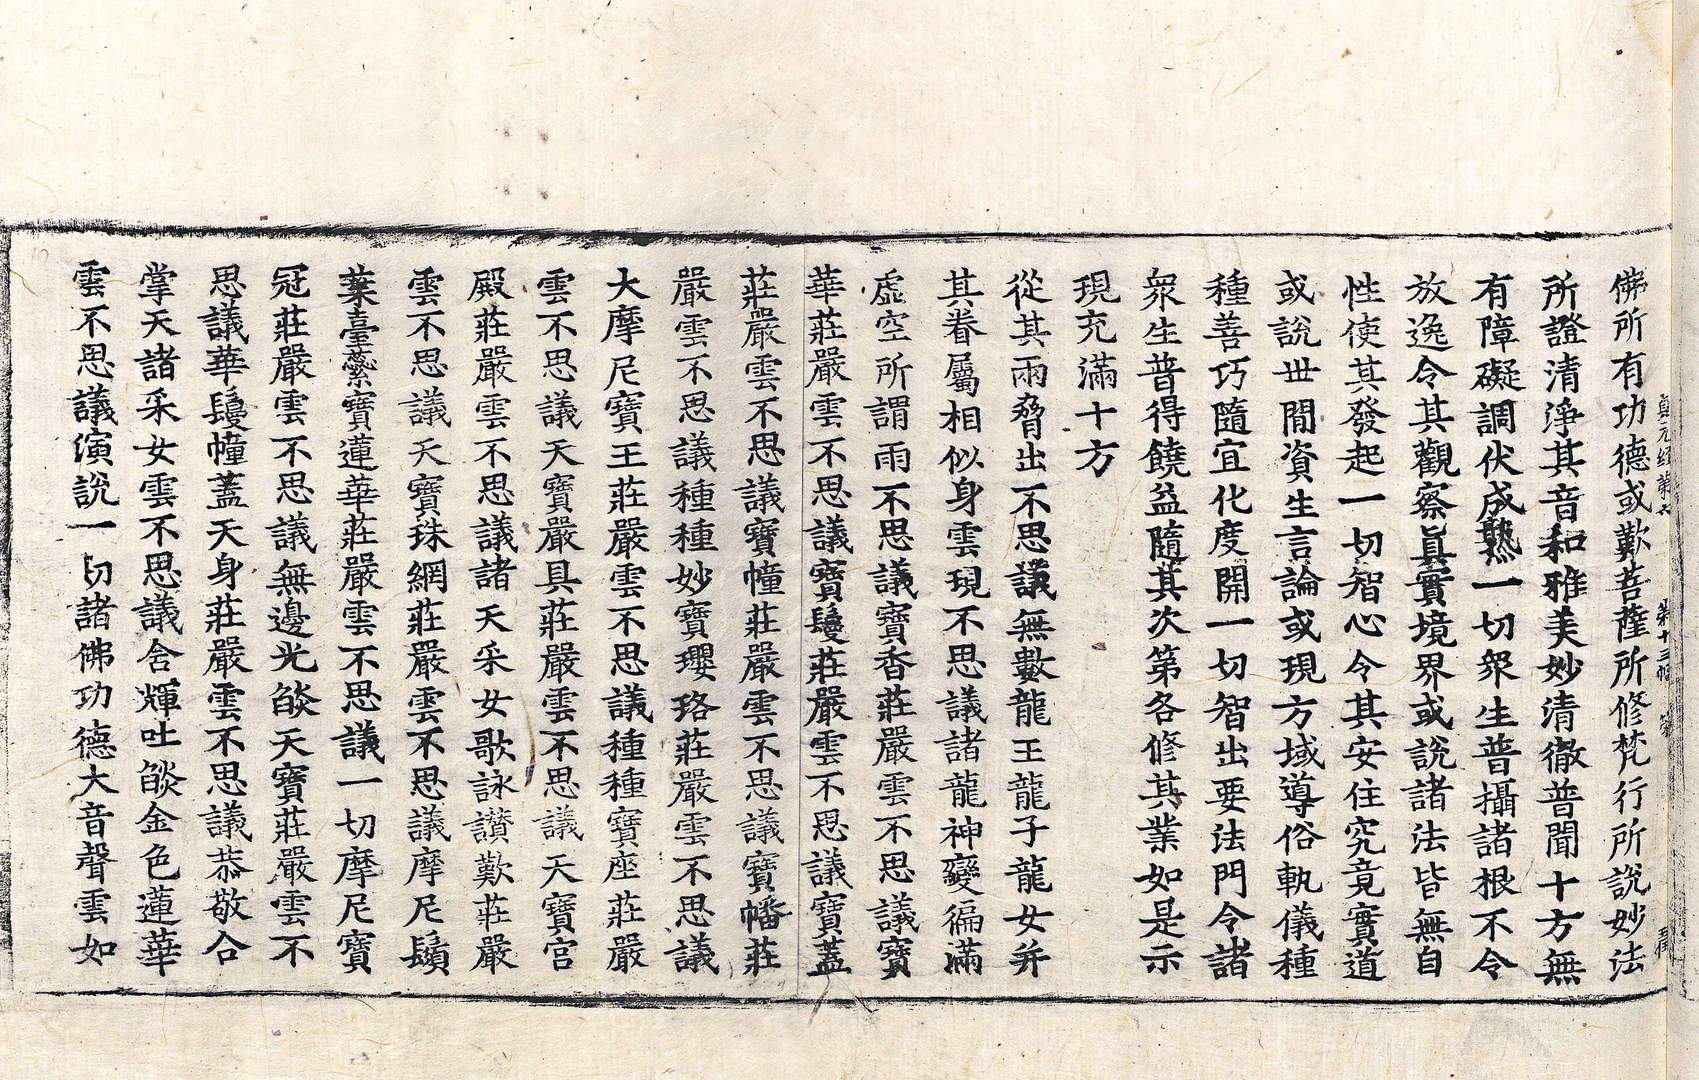 佛所有功德或歎菩薩所修梵行所說妙法
所證清淨其音和雅美妙清徹普聞十方無
有障礙調伏成熟一切衆生普攝諸根不令
放逸令其觀察眞實境界或說諸法皆無自
性使其發起一切智心令其安住究竟實道
或說世間資生言論或現方域導俗軌儀種
種善巧隨宜化度開一切智出要法門令諸
衆生普得饒益隨其次第各修其業如是示
現充滿十方
從其兩脅出不思議無數龍王龍子龍女并
其眷屬相似身雲現不思議諸龍神變徧滿
虛空所謂雨不思議寶香莊嚴雲不思議寶
華莊嚴雲不思議寶鬘莊嚴雲不思議寶蓋
莊嚴雲不思議寶幢莊嚴雲不思議寶幡莊
嚴雲不思議種種妙寶瓔珞莊嚴雲不思議
大摩尼寶王莊嚴雲不思議種種寶座莊嚴
雲不思議天寶嚴具莊嚴雲不思議天寶宮
殿莊嚴雲不思議諸天采女歌詠讃歎莊嚴
雲不思議天寶珠網莊嚴雲不思議摩尼鬚
葉臺蘂寶蓮華莊嚴雲不思議一切摩尼寶
冠莊嚴雲不思議無邊光燄天寶莊嚴雲不
思議華鬘幢蓋天身莊嚴雲不思議恭敬合
掌天諸采女雲不思議含輝吐燄金色蓮華
雲不思議演說一切諸佛功德大音聲雲如